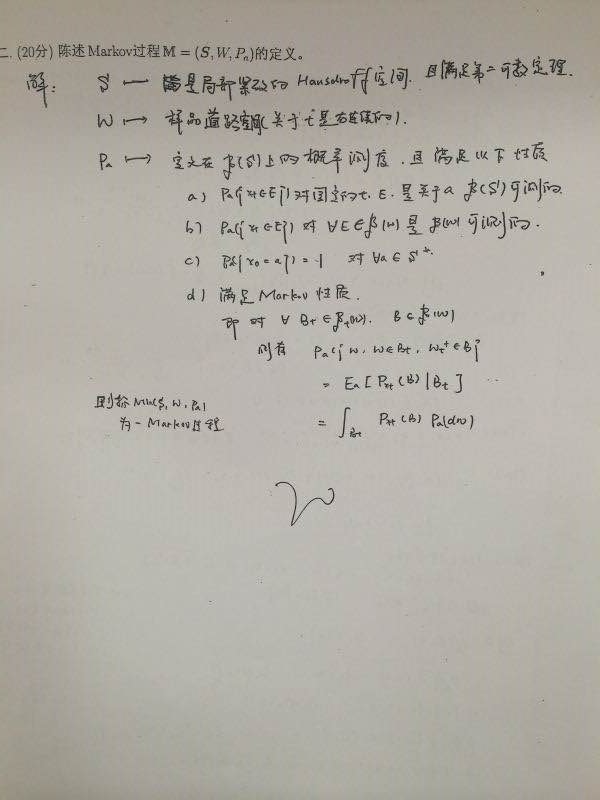 二. (20分) 陈述 Markov过程 M = (S, W, Pₐ)的定义。
解: S — 满足局部紧致的 Hausdroff 空间. 且满足第二可数定理.
W ⟼ 样品道路空间(关于 t 是右连续的).
Pa ⟼ 定义在 β(S)上的概率测度. 且满足以下性质
a) Pa({xt∈E}) 对固定的t. E. 是关于a β(S)可测的.
b) Pa({xt∈E}) 对 ∀E∈β(W) 是 β(W) 可测的.
c) Pa({x₀=a}) = 1 对 ∀a∈S*.
d) 满足 Markov 性质.
即对 ∀ Bt∈βt(W). B∈β(W)
则有 Pa({w, w∈Bt, wt⁺∈B}
= Ea[Pxt(B)|Bt]
= ∫Bt Pxt(B) Pa(dw)
则称 M=(S, W, Pa)
为一 Markov过程
20